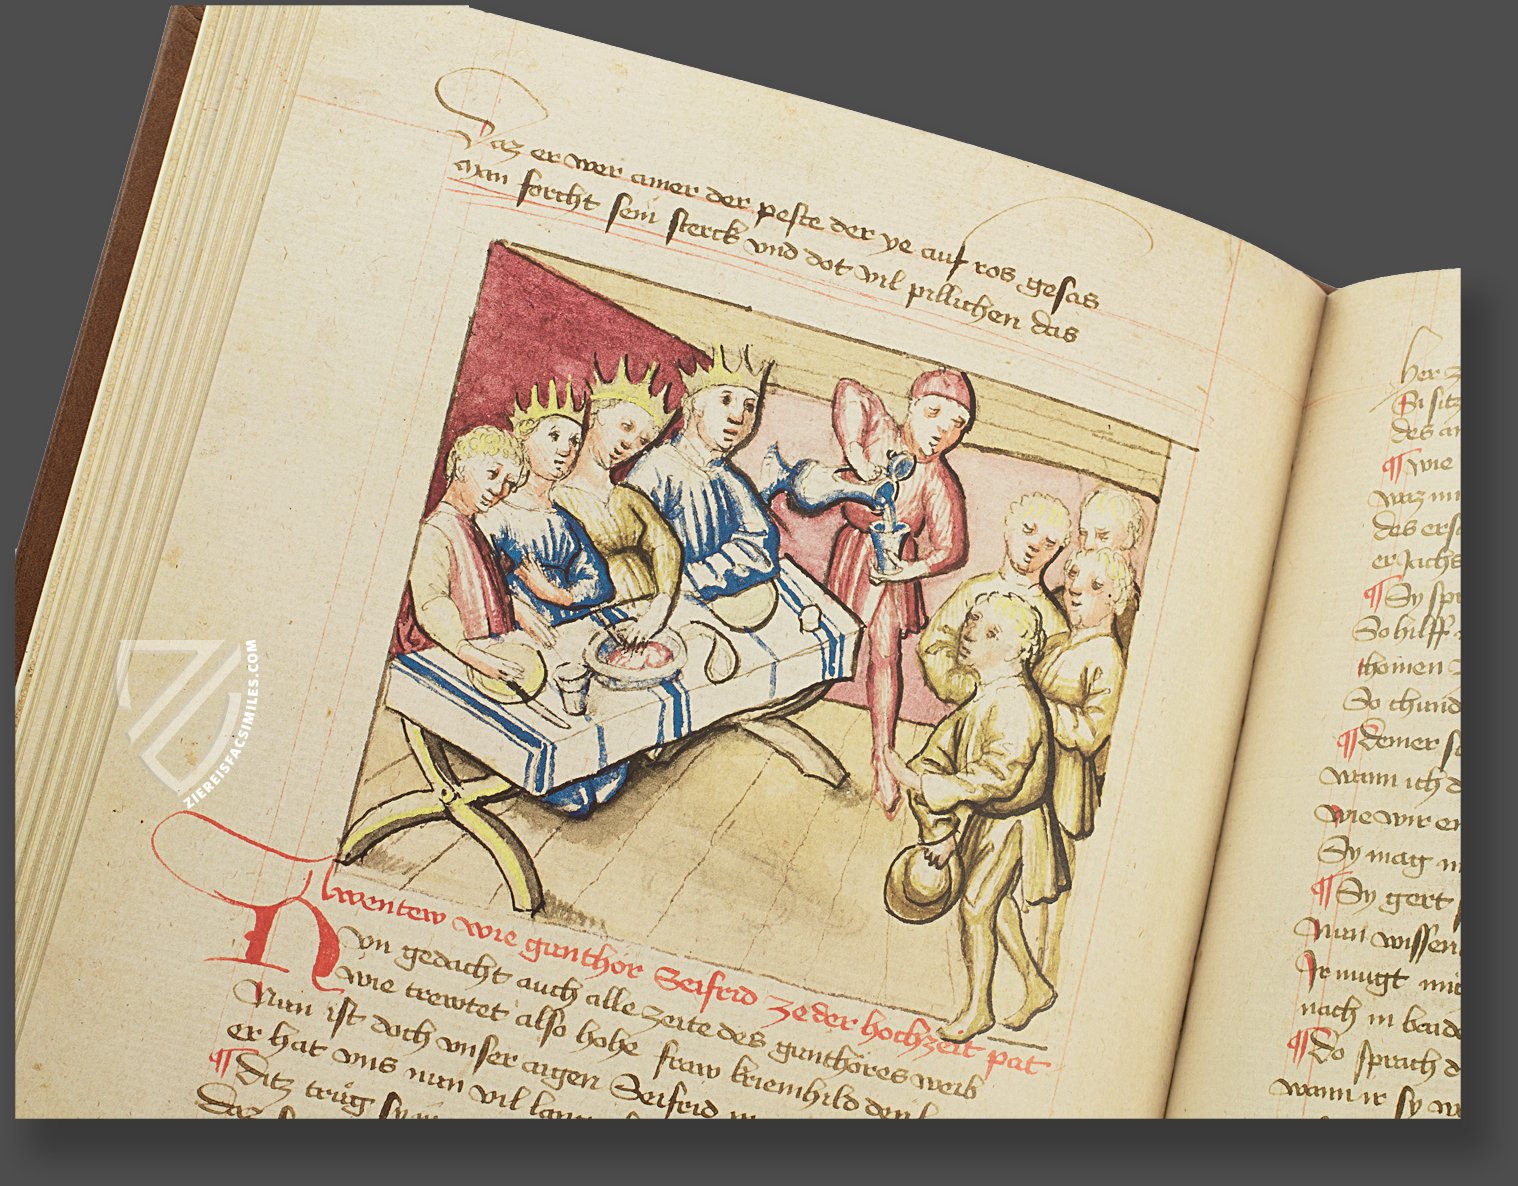 Daz er wer ainer der peste der ye auf ros gesas
Man forcht sein sterck vnd dot vil pillichen das
ZIEREISFACSIMILES.COM
Abentew wie gunthor Seifrid ze der hochzeit pat
Nvn gedacht auch alle zeite des gunthores weib
wie trewtet also hohe fraw kriemhild den l
Nun ist doch vnser aigen Seifrid
er hat vns nun vil lan
¶ Ditz trug sy
Daz
her
Si sitz
des
¶ wie
waz
des ers
er Jachs
¶ Sy spr
So hilff
thomen
So chund
¶ Demer
wann ich d
wie wir er
Sy mag
¶ Sy gert
Nun wissen
Ir mugt
nach in baide
¶ Do sprach d
wann ir sy